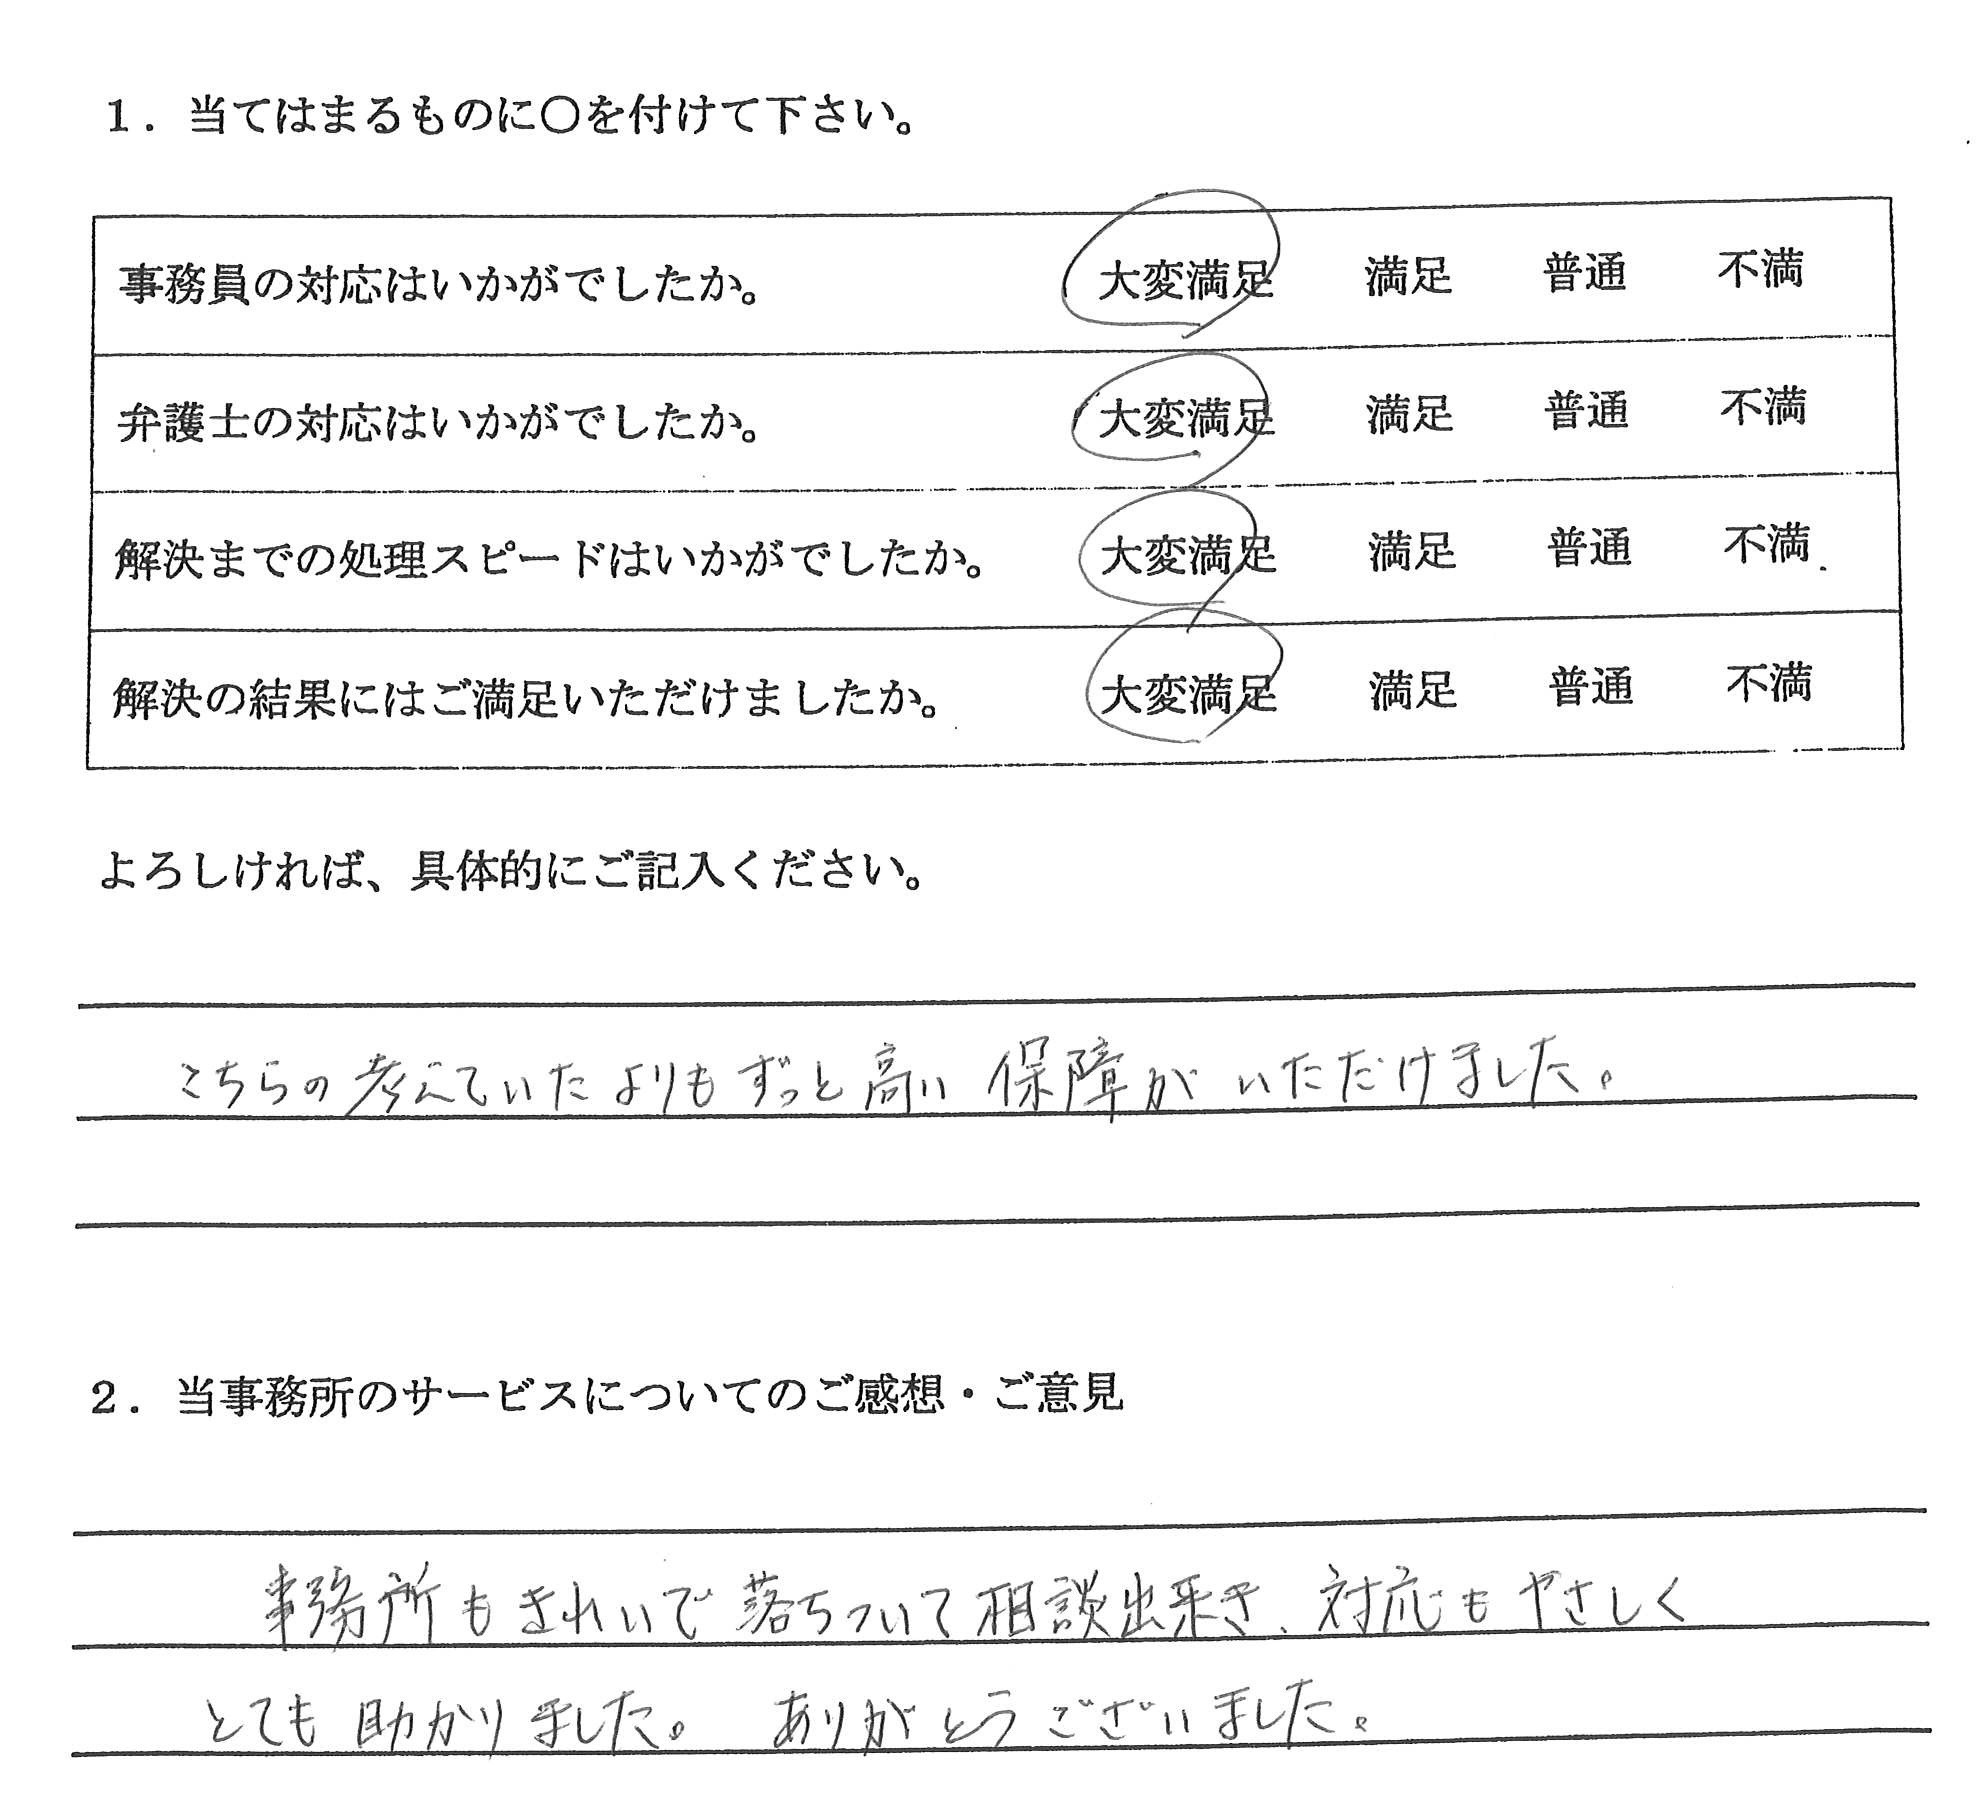 1．当てはまるものに〇を付けて下さい。
事務員の対応はいかがでしたか。 大変満足 満足 普通 不満
弁護士の対応はいかがでしたか。 大変満足 満足 普通 不満
解決までの処理スピードはいかがでしたか。 大変満足 満足 普通 不満
解決の結果にはご満足いただけましたか。 大変満足 満足 普通 不満
よろしければ、具体的にご記入ください。
こちらの考えていたよりもずっと高い保障がいただけました。
2．当事務所のサービスについてのご感想・ご意見
事務所もきれいで落ちついて相談出来き、対応もやさしく
とても助かりました。ありがとうございました。